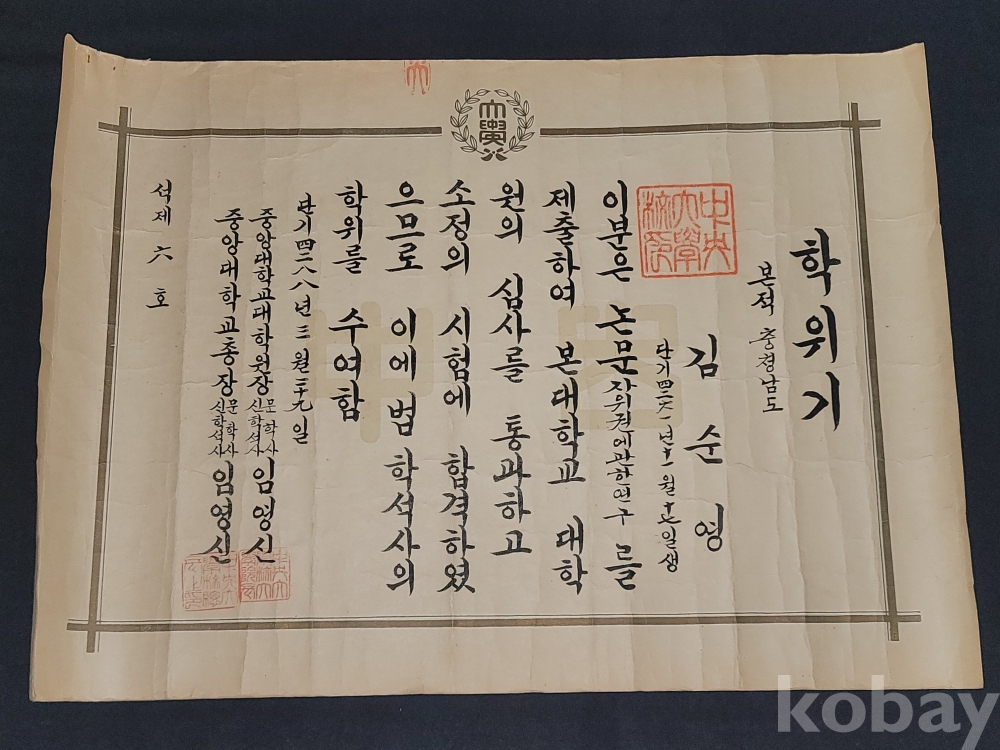 大學
학위기
본적 충청남도
中央大學校印
김순영
단기四二六一년十一월十七일생
이분은 논문 자위권에관한연구 를
제출하여 본대학교 대학
원의 심사를 통과하고
소정의 시험에 합격하였
으므로 이에 법학석사의
학위를 수여함
단기四二八八년三월 九일
중앙대학교대학원장 문학사 신학석사 임영신
중앙대학교총장 문학사 신학석사 임영신
석제 六 호
kobay